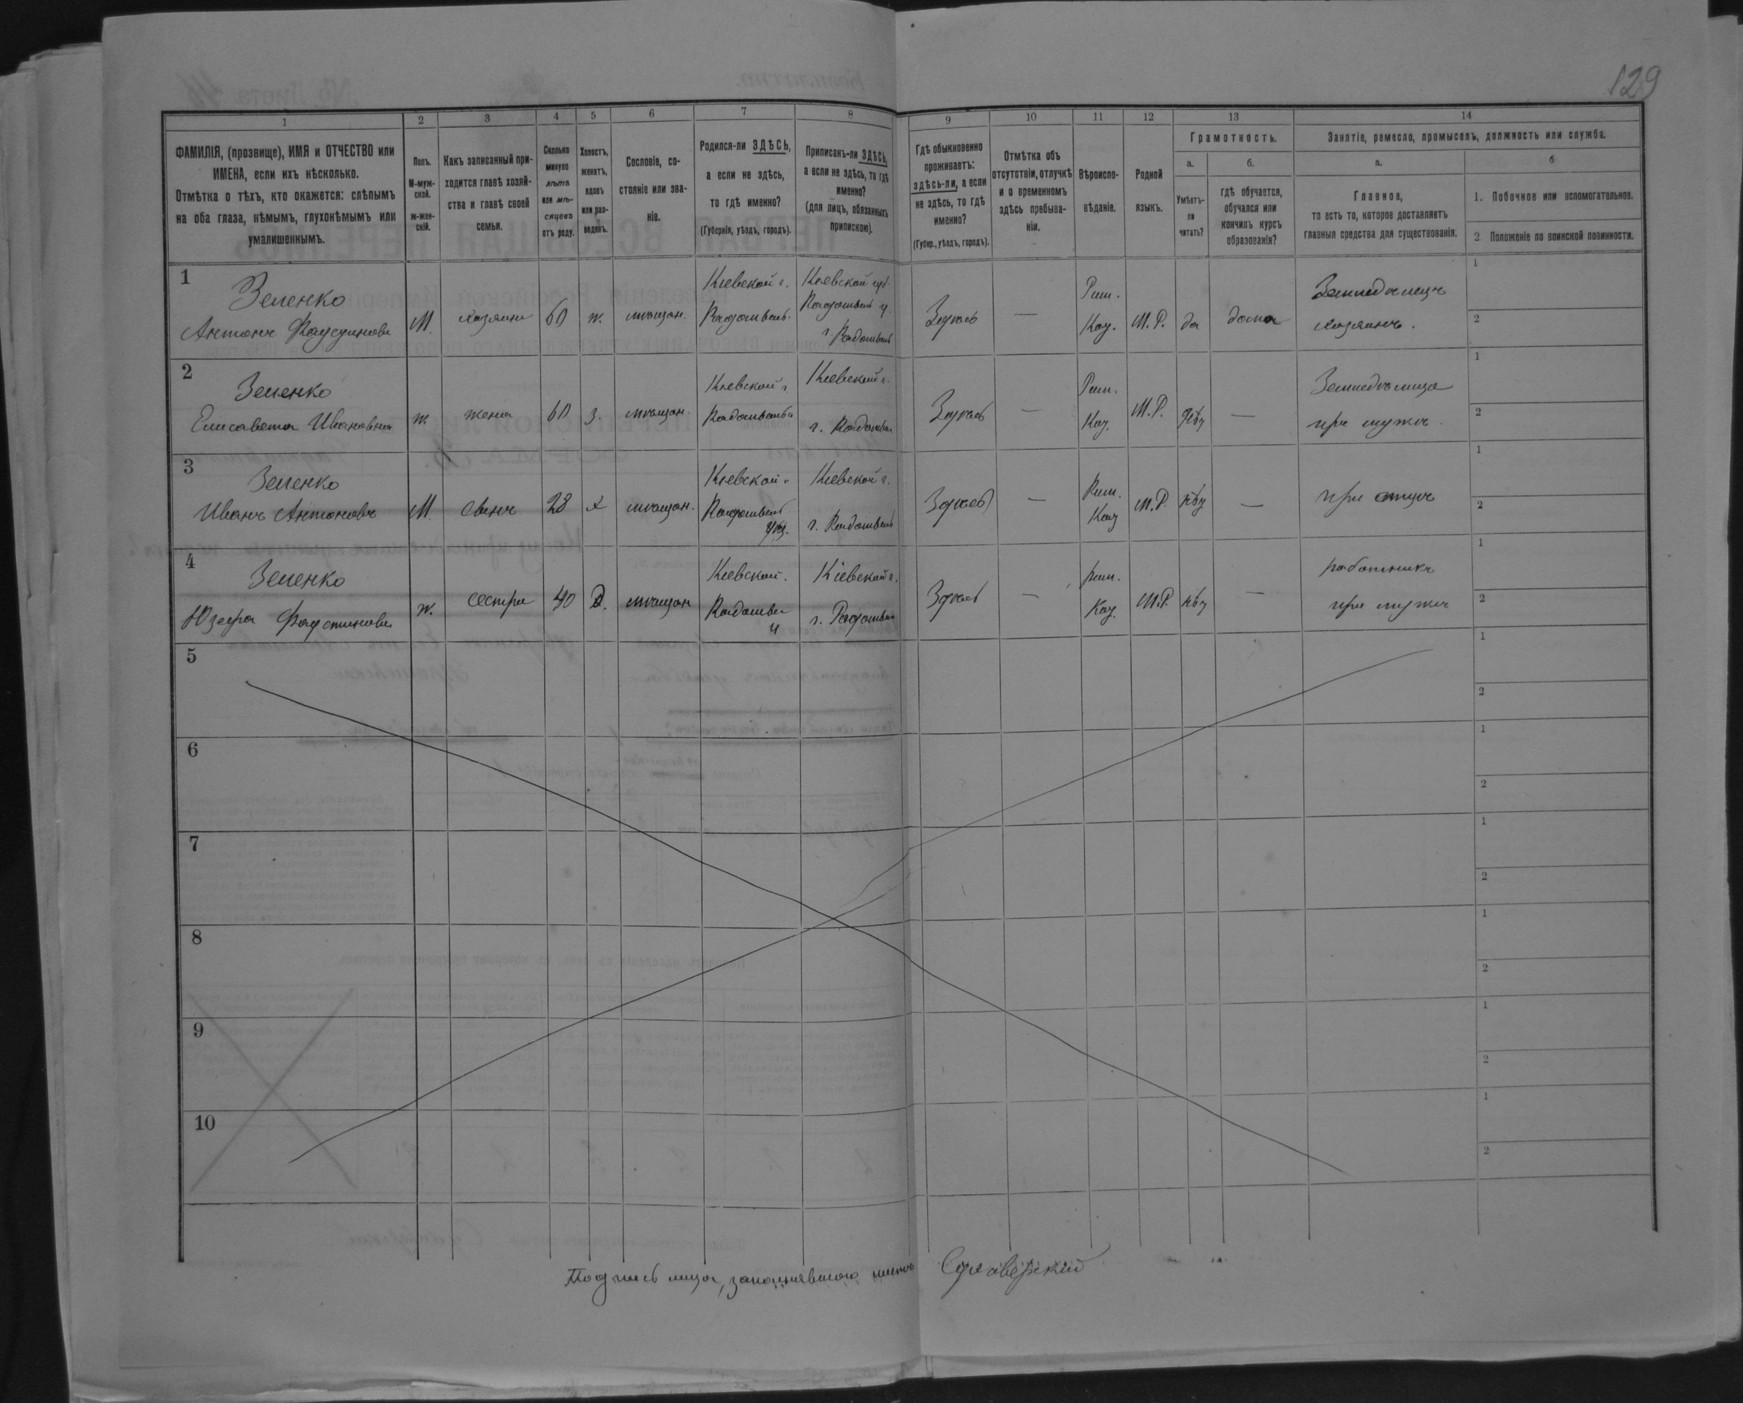 129
1 2 3 4 5 6 7 8 9 10 11 12 13 14
ФАМИЛІЯ, (прозвище), ИМЯ и ОТЧЕСТВО или
ИМЕНА, если ихъ нѣсколько.
Отмѣтка о тѣхъ, кто окажется: слѣпымъ
на оба глаза, нѣмымъ, глухонѣмымъ или
умалишеннымъ.
Полъ.
М-муж-
ской.
ж-жен-
скій.
Какъ записанный при-
ходится главѣ хозяй-
ства и главѣ своей
семьи.
Сколько
минуло
лѣтъ
или мѣ-
сяцевъ
отъ роду.
Холостъ,
женатъ,
вдовъ
или раз-
веденъ.
Сословіе, со-
стояніе или зва-
ніе.
Родился-ли ЗДѢСЬ,
а если не здѣсь,
то гдѣ именно?
(Губернія, уѣздъ, городъ).
Приписанъ-ли ЗДѢСЬ,
а если не здѣсь, то гдѣ
именно?
(для лицъ, обязанныхъ
припискою).
Гдѣ обыкновенно
проживаетъ:
здѣсь-ли, а если
не здѣсь, то гдѣ
именно?
(Губер., уѣздъ, городъ).
Отмѣтка объ
отсутствіи, отлучкѣ
и о временномъ
здѣсь пребыва-
ніи.
Вѣроиспо-
вѣданіе.
Родной
языкъ.
Грамотность.
а.
Умѣетъ-
ли
читать?
б.
гдѣ обучается,
обучался или
кончилъ курсъ
образованія?
Занятіе, ремесло, промыселъ, должность или служба.
а.
Главное,
то есть то, которое доставляетъ
главныя средства для существованія.
б
1. Побочное или вспомогательное.
2 Положеніе по воинской повинности.
1
Зеленко
Антонъ Фаустинова
М.
хозяинъ
60
ж.
мѣщан.
Кіевской г.
Радомысль.
Кіевской губ.
Радомысль у
г. Радомысль
Здѣсь
—
Рим.
Кат.
М. Р.
да
дома
Земледѣлецъ
хозяинъ.
1
2
2
Зеленко
Елисавета Ивановна
ж.
жена
60
з.
мѣщан.
Кіевской г
Кіевской г.
г. Радомысль
Здѣсь
—
Рим.
Кат.
М. Р.
—
Земледѣлица
при мужѣ.
1
2
3
Зеленко
Иванъ Антоновъ
М
сынъ
28
х
мѣщан.
Кіевской г
Радомысль
уѣз.
Кіевской г.
г. Радомысль
Здѣсь
—
Рим.
Кат
М. Р.
нѣт
—
при отцѣ
1
2
4
Зеленко
Юзефа Фаустинова
ж.
сестра
40
Д.
мѣщан
Кіевской.
у
Кіевской г.
г. Радомысль
Здѣсь
—
рим.
Кат.
М. Р.
нѣт
—
работника
при мужѣ
1
2
5
1
2
6
1
2
7
1
2
8
1
2
9
1
2
10
1
2
Подпись лица, заполнявшаго листъ